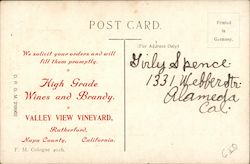 POST CARD.
We solicit your orders and will
fill them promptly.
High Grade
Wines and Brandy.
VALLEY VIEW VINEYARD,
Rutherford,
Napa County, California.
F. M. Cologne
(For Address Only)
Printed
in
Germany.
Girly Spence
1331 Webber Str.
Alameda
Cal.